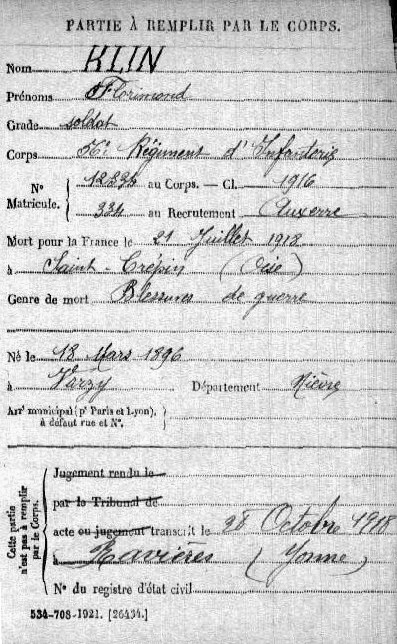 PARTIE À REMPLIR PAR LE CORPS.
Nom KLIN
Prénoms Florimond
Grade soldat
Corps Régiment d'Infanterie
N° Matricule.
au Corps. — Cl. 1916
334 au Recrutement Auxerre
Mort pour la France le 21 Juillet 1918
à Saint-Crépin (Oise)
Genre de mort Blessures de guerre
Né le 18 Mars 1896
à Varzy Département Nièvre
Arrt municipal (pr Paris et Lyon),
à défaut rue et N°.
Cette partie
n'est pas à remplir
par le Corps.
Jugement rendu le
par le Tribunal de
acte ou jugement transcrit le 28 Octobre 1918
à Ravières (Yonne)
N° du registre d'état civil
534-708-1921. [26434.]